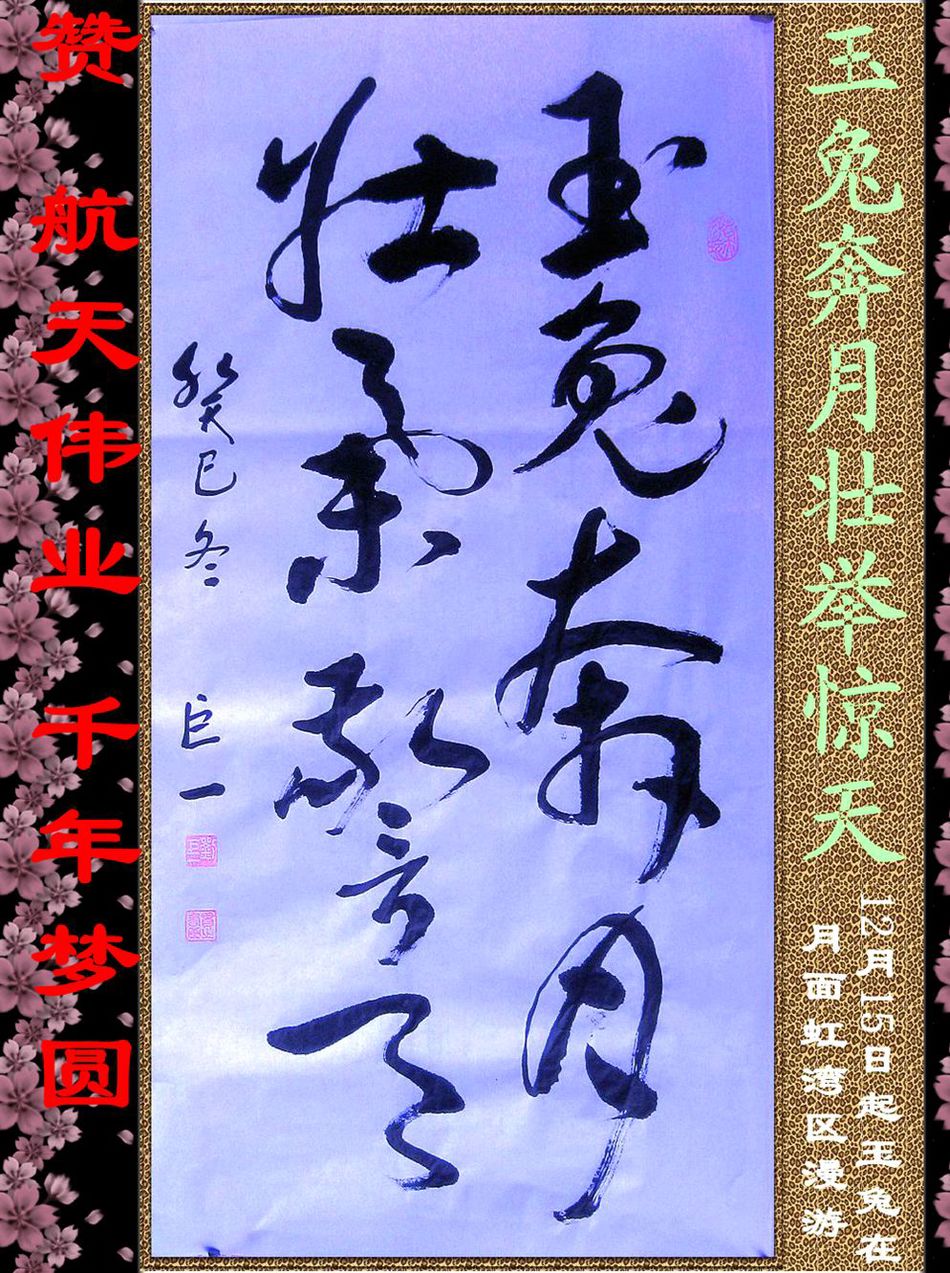 玉兔奔月壮举惊天
12月15日起玉兔在
月面虹湾区漫游
玉兔奔月
壮氣警天
癸巳冬 巨一
赞 航天伟业 千年梦圆